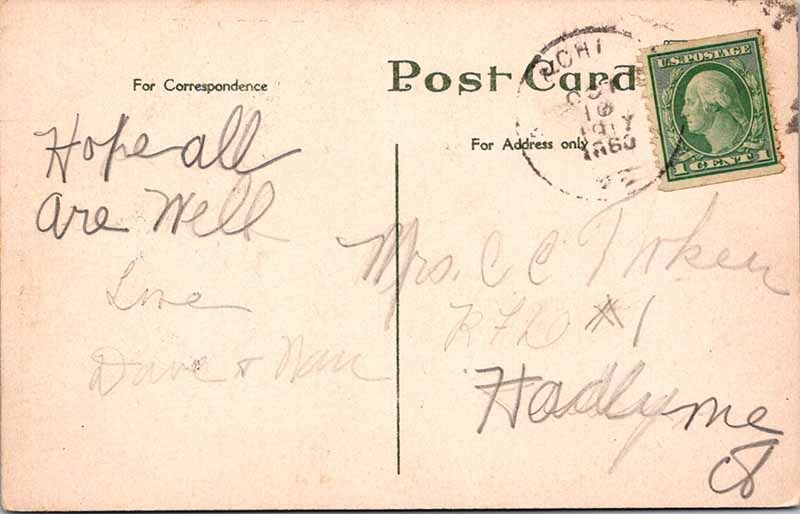 For Correspondence
Post Card
For Address only
U.S. POSTAGE
1 CENT 1
OCT
10
1917
Hope all
are Well
Love
Dave & Nan
Mrs. C C
RFD #1
Hadlyme
Ct